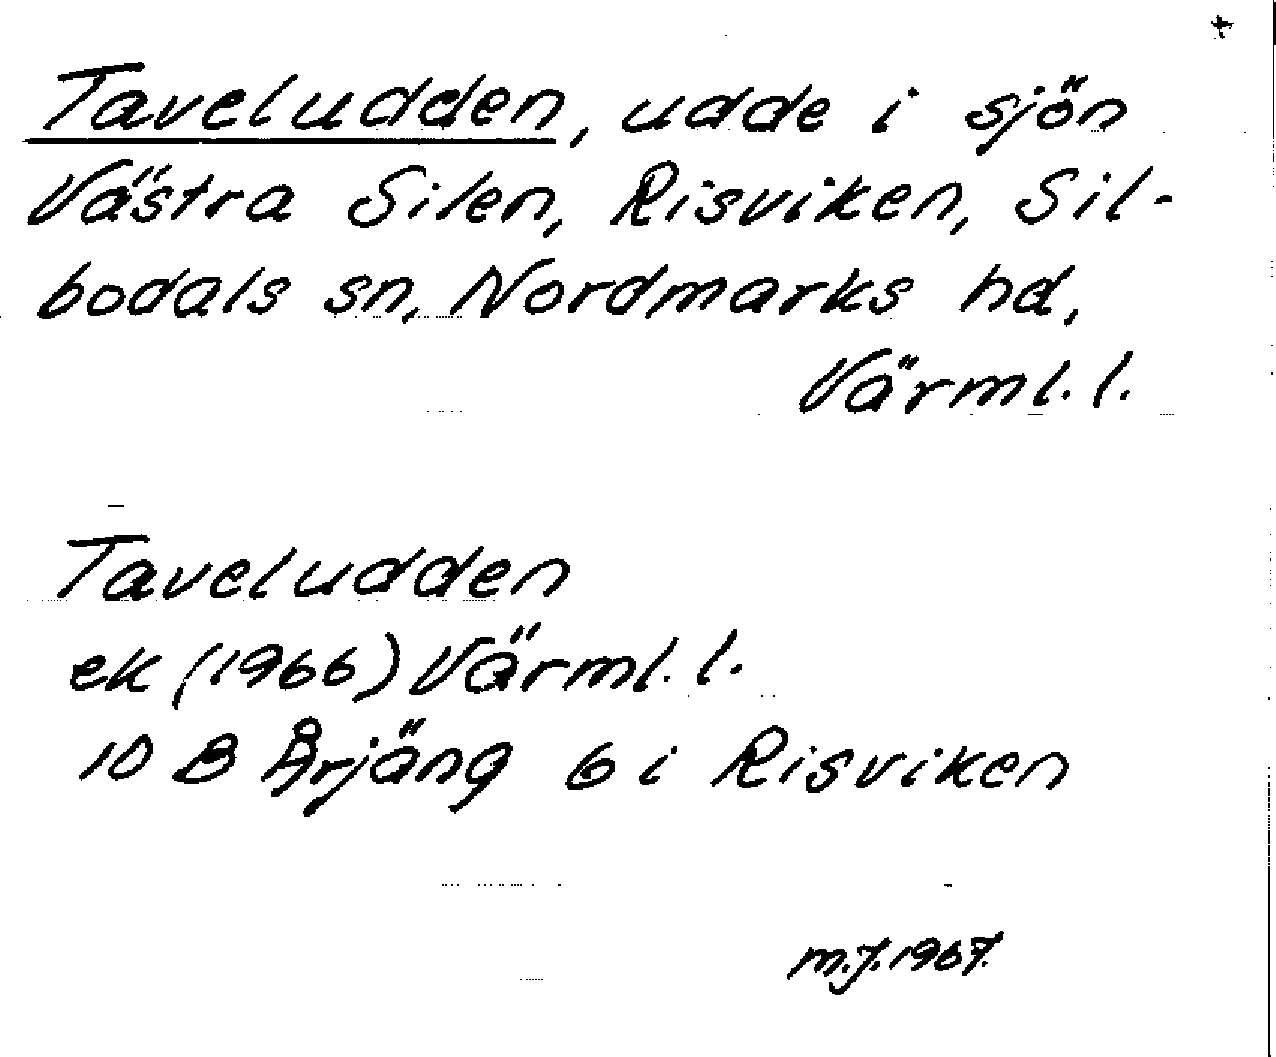 +
Taveludden, udde i sjön
Västra Silen, Risviken, Sil-
bodals sn, Nordmarks hd,
Värml. l.
Taveludden
ek (1966) Värml. l.
10 B Årjäng 6 i Risviken
m.J. 1967.